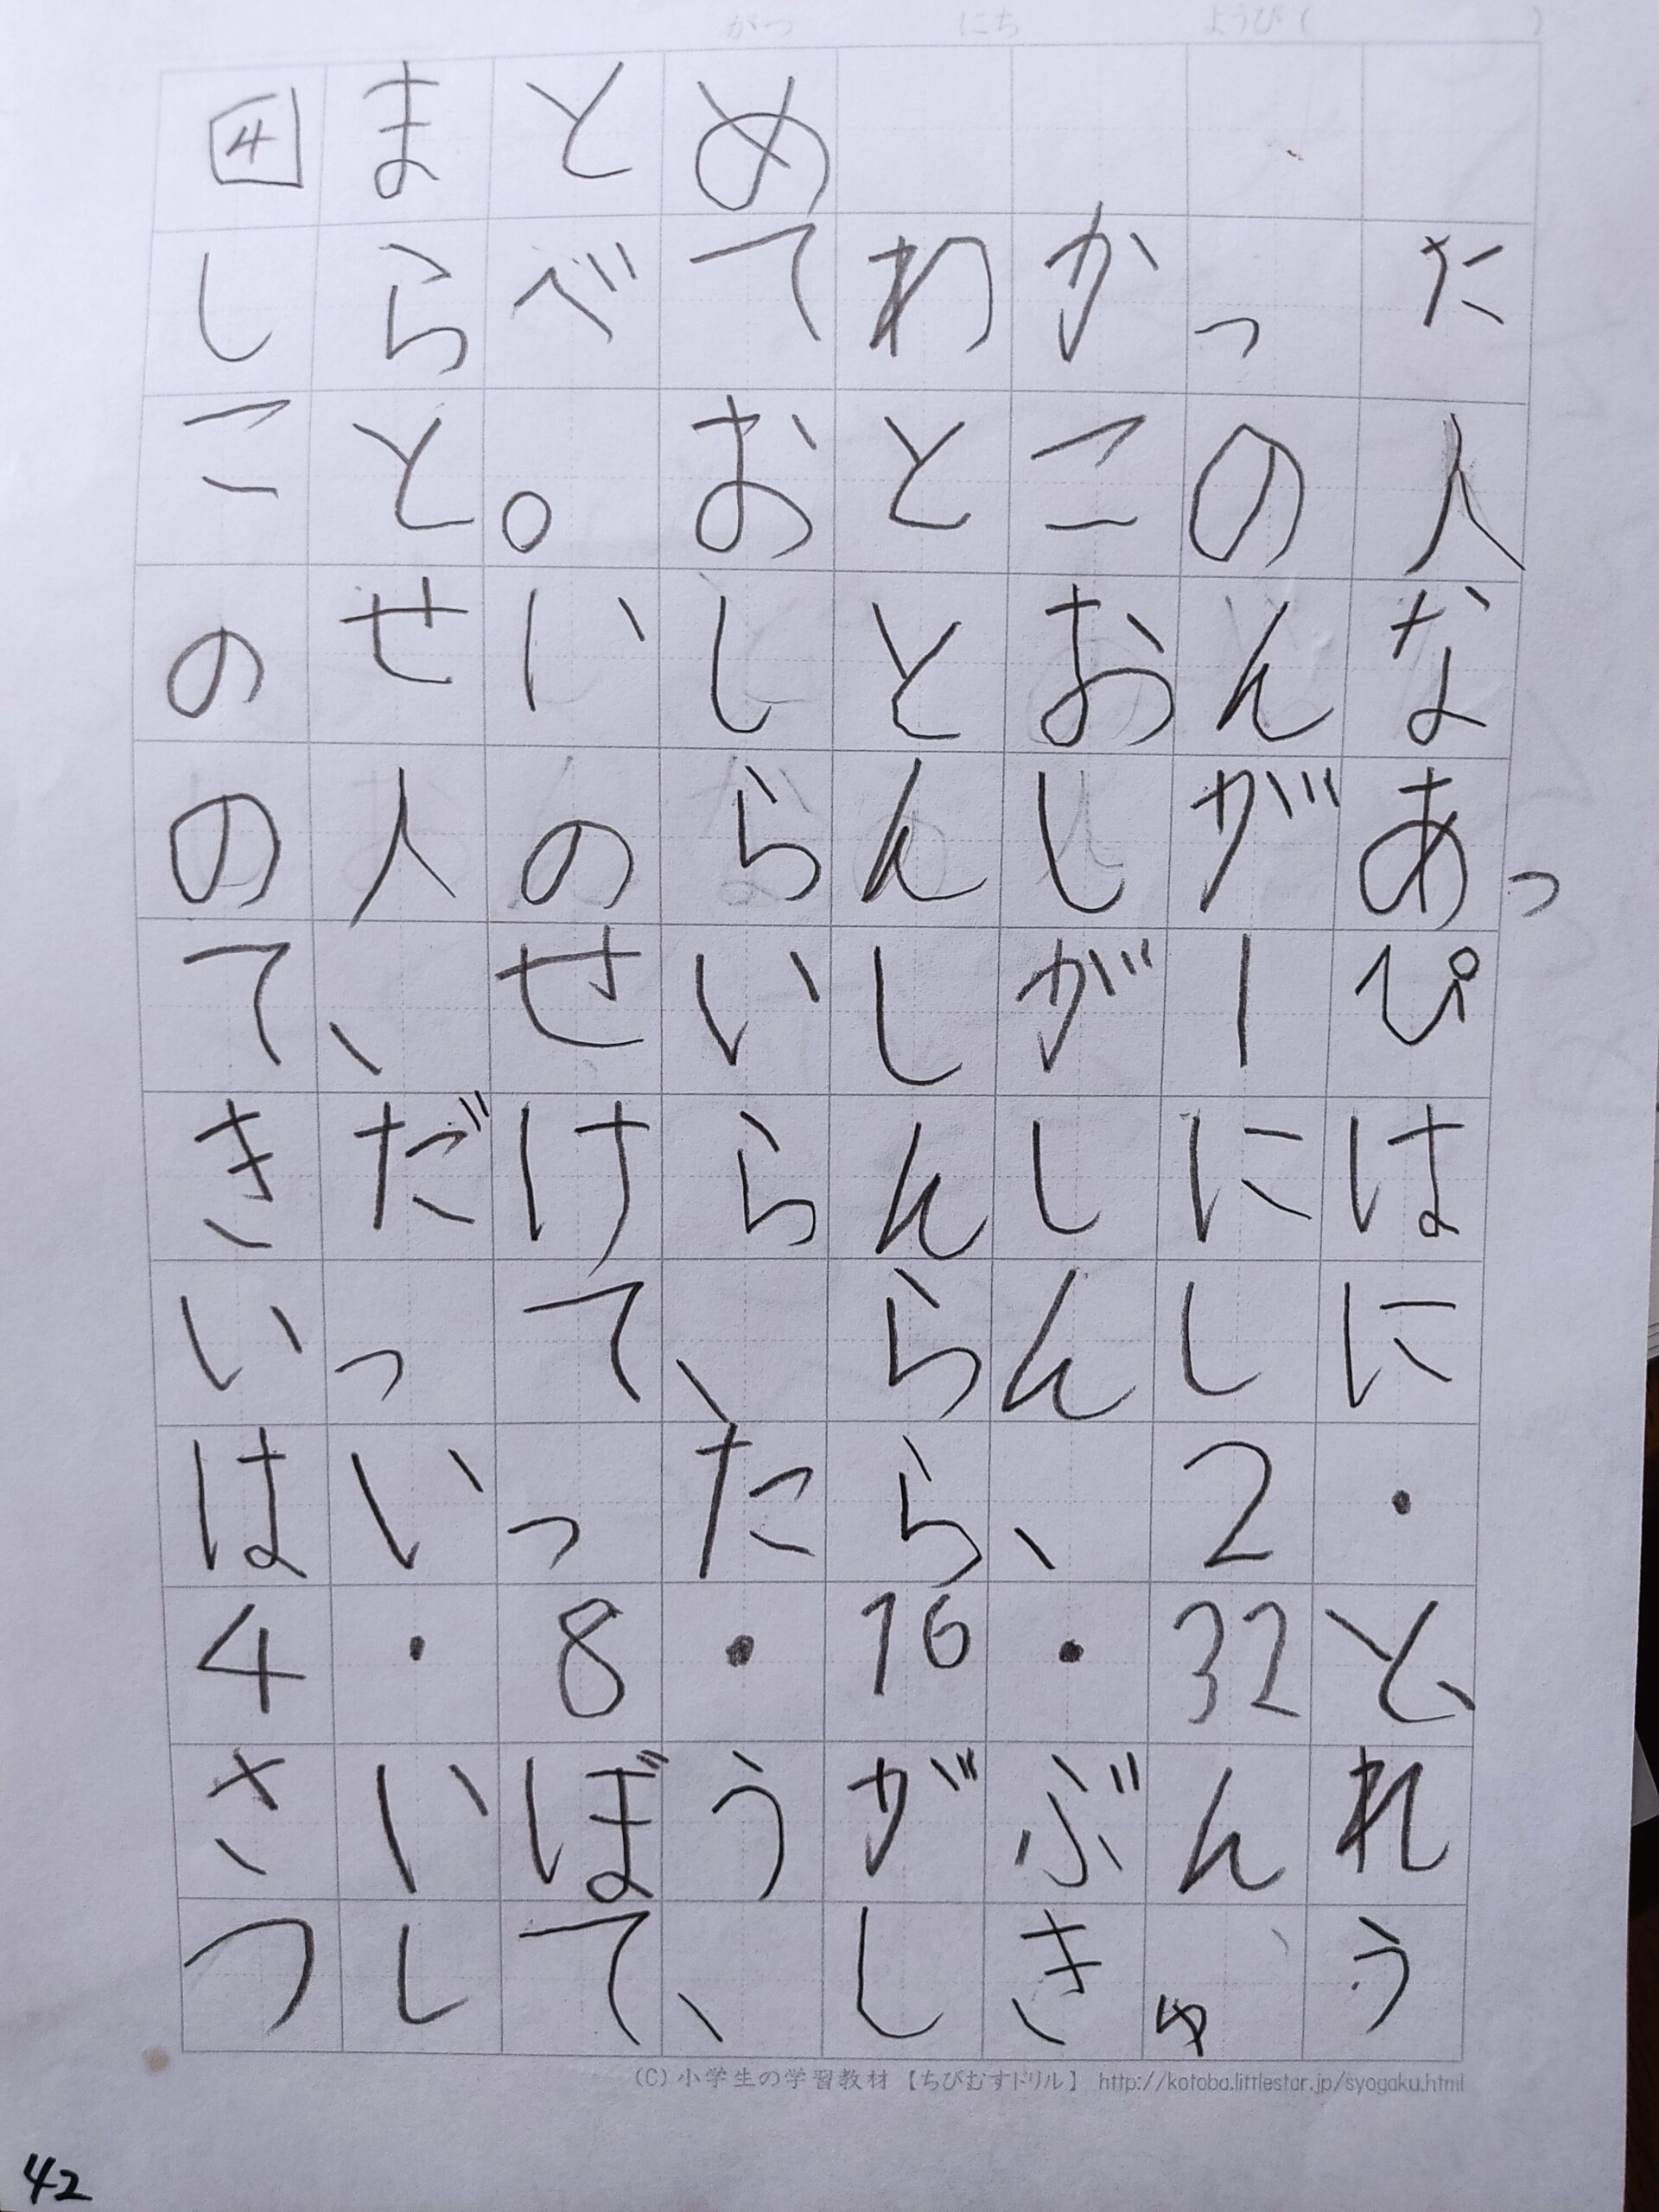 がつ にち ようび( )
4 まとめ
しらべてわかった
こと。おとこの人
のせいしとおんな
の人のらんしがあっ
て、せいしが1ぴ
きだけらんしには
いって、らんしに
はいったら、2・
4・8・16・32と、
さいぼうがぶんれ
つして、しきゅう
(C) 小学生の学習教材【ちびむすドリル】 http://kotoba.littlestar.jp/syogaku.html
42